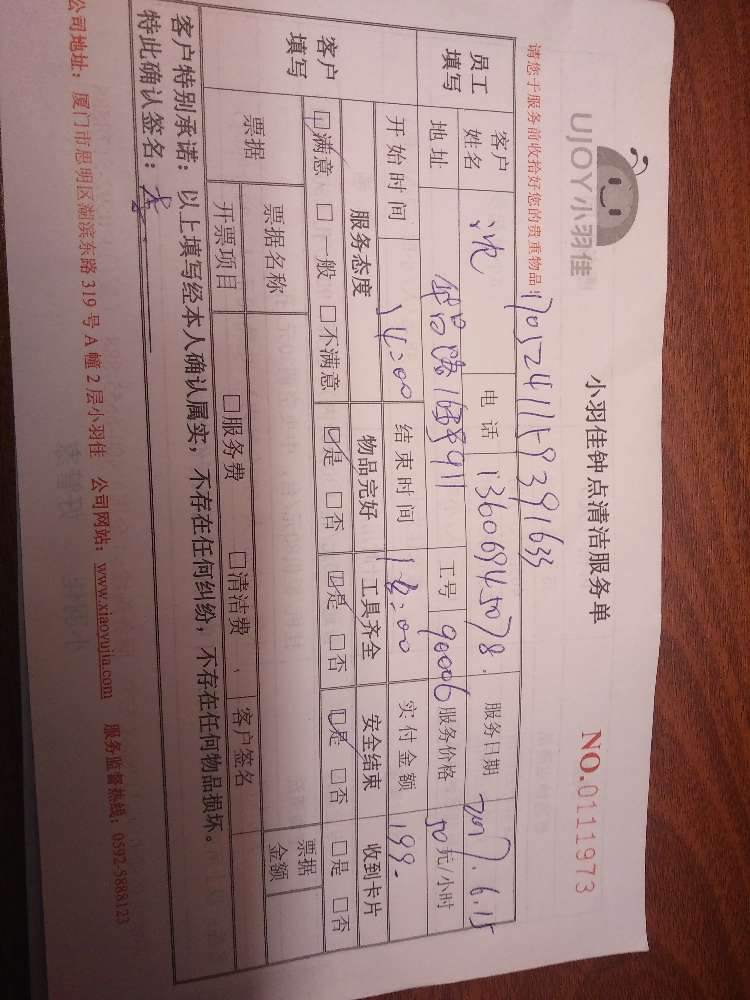 UJOY小羽佳
小羽佳钟点清洁服务单
NO.0111973
请您于服务前收拾好您的贵重物品!
1705241159391633
员工填写 客户姓名 沈 电话 13606945078 服务日期 2017.6.15
地址 工号 90006 服务价格 50元/小时
开始时间 14:00 结束时间 18:00 实付金额 199.
客户填写 服务态度 物品完好 工具齐全 安全结束 收到卡片
☑满意 □一般 □不满意 ☑是 □否 ☑是 □否 ☑是 □否 □是 □否
票据 票据名称 票据金额
开票项目 □服务费 □清洁费、 客户签名
客户特别承诺:以上填写经本人确认属实,不存在任何纠纷,不存在任何物品损坏。
特此确认签名:
公司地址:厦门市思明区湖滨东路319号A幢2层小羽佳 公司网站:www.xiaoyujia.com 服务监督热线:0592-5888123